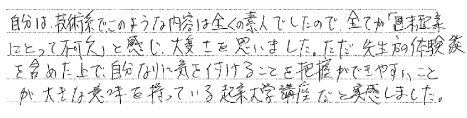 自分は、技術系でこのような内容は全くの素人でしたので、全てが「週末起業
にとって不可欠」と感じ、大変さを思いました。ただ、先生方の体験談
を含めた上で、自分なりに気を付けることを把握ができやすいこと
が大きな意味を持っている起業大学講座だと実感しました。